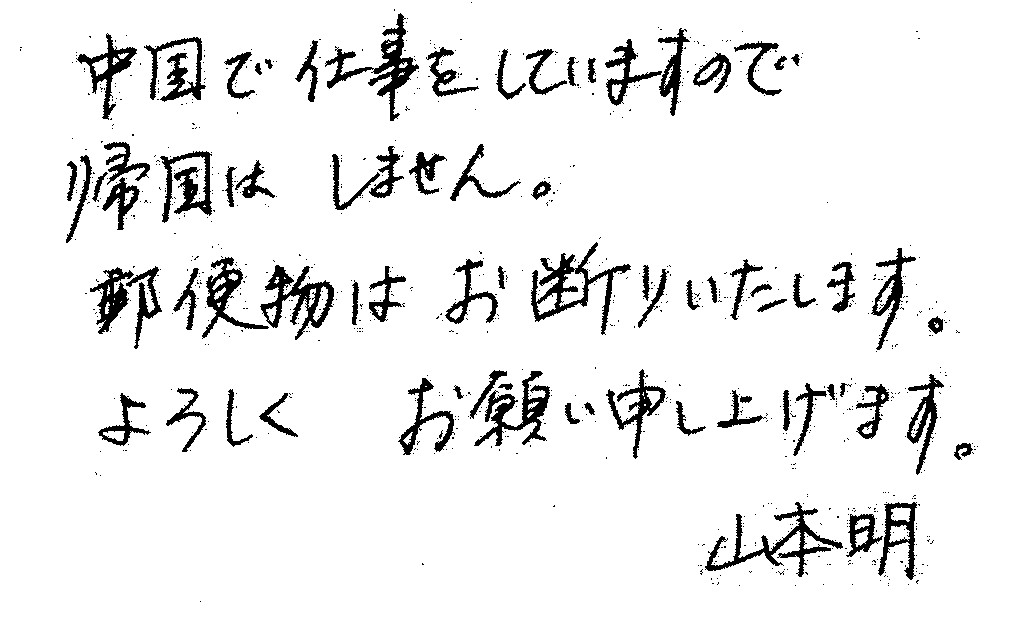 中国で仕事をしていますので
帰国は しません。
郵便物は お断りいたします。
よろしく お願い申し上げます。
山本明